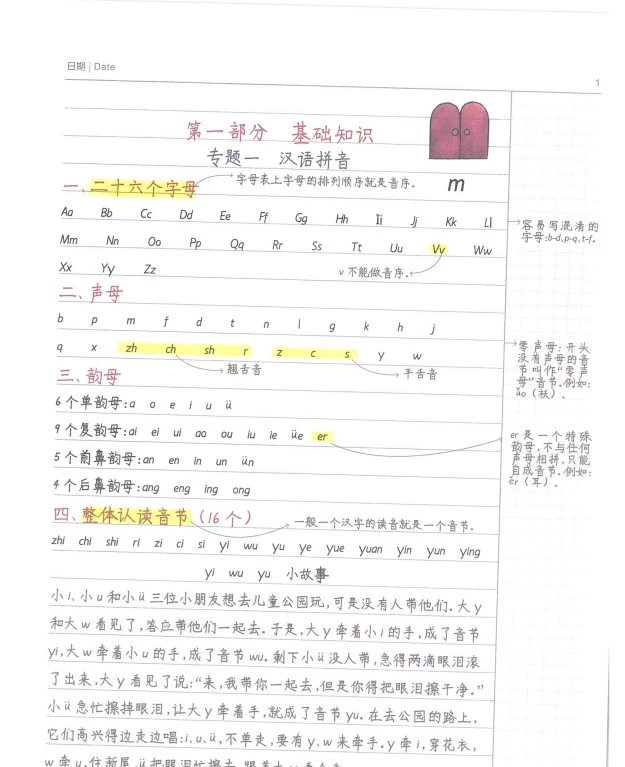 日期 | Date
1
第一部分 基础知识
专题一 汉语拼音
一、二十六个字母
字母表上字母的排列顺序就是音序.
m
Aa Bb Cc Dd Ee Ff Gg Hh Ii Jj Kk Ll
容易写混淆的
字母:b-d,p-q,t-f.
Mm Nn Oo Pp Qq Rr Ss Tt Uu Vv Ww
Xx Yy Zz
v 不能做音序.
二、声母
b p m f d t n l g k h j
q x zh ch sh r z c s y w
翘舌音
平舌音
零声母: 开头
没有声母的音
节叫作“零声
母”音节.例如:
ǎo（袄）.
三、韵母
6 个单韵母:a o e i u ü
9 个复韵母:ai ei ui ao ou iu ie üe er
er 是一个特殊
韵母,不与任何
声母相拼,只能
自成音节.例如:
ěr（耳）.
5 个前鼻韵母:an en in un ün
4 个后鼻韵母:ang eng ing ong
四、整体认读音节（16 个）
一般一个汉字的读音就是一个音节.
zhi chi shi ri zi ci si yi wu yu ye yue yuan yin yun ying
yi wu yu 小故事
小 i、小 u 和小 ü 三位小朋友想去儿童公园玩,可是没有人带他们.大 y
和大 w 看见了,答应带他们一起去.于是,大 y 牵着小 i 的手,成了音节
yi,大 w 牵着小 u 的手,成了音节 wu.剩下小 ü 没人带,急得两滴眼泪滚
了出来,大 y 看见了说:“来,我带你一起去,但是你得把眼泪擦干净.”
小 ü 急忙擦掉眼泪,让大 y 牵着手,就成了音节 yu.在去公园的路上,
它们高兴得边走边唱:i、u、ü,不单走,要有 y、w 来牵手.y 牵 i,穿花衣,
w 牵 u,住新屋,ü 把眼泪忙擦去,跟着大 y